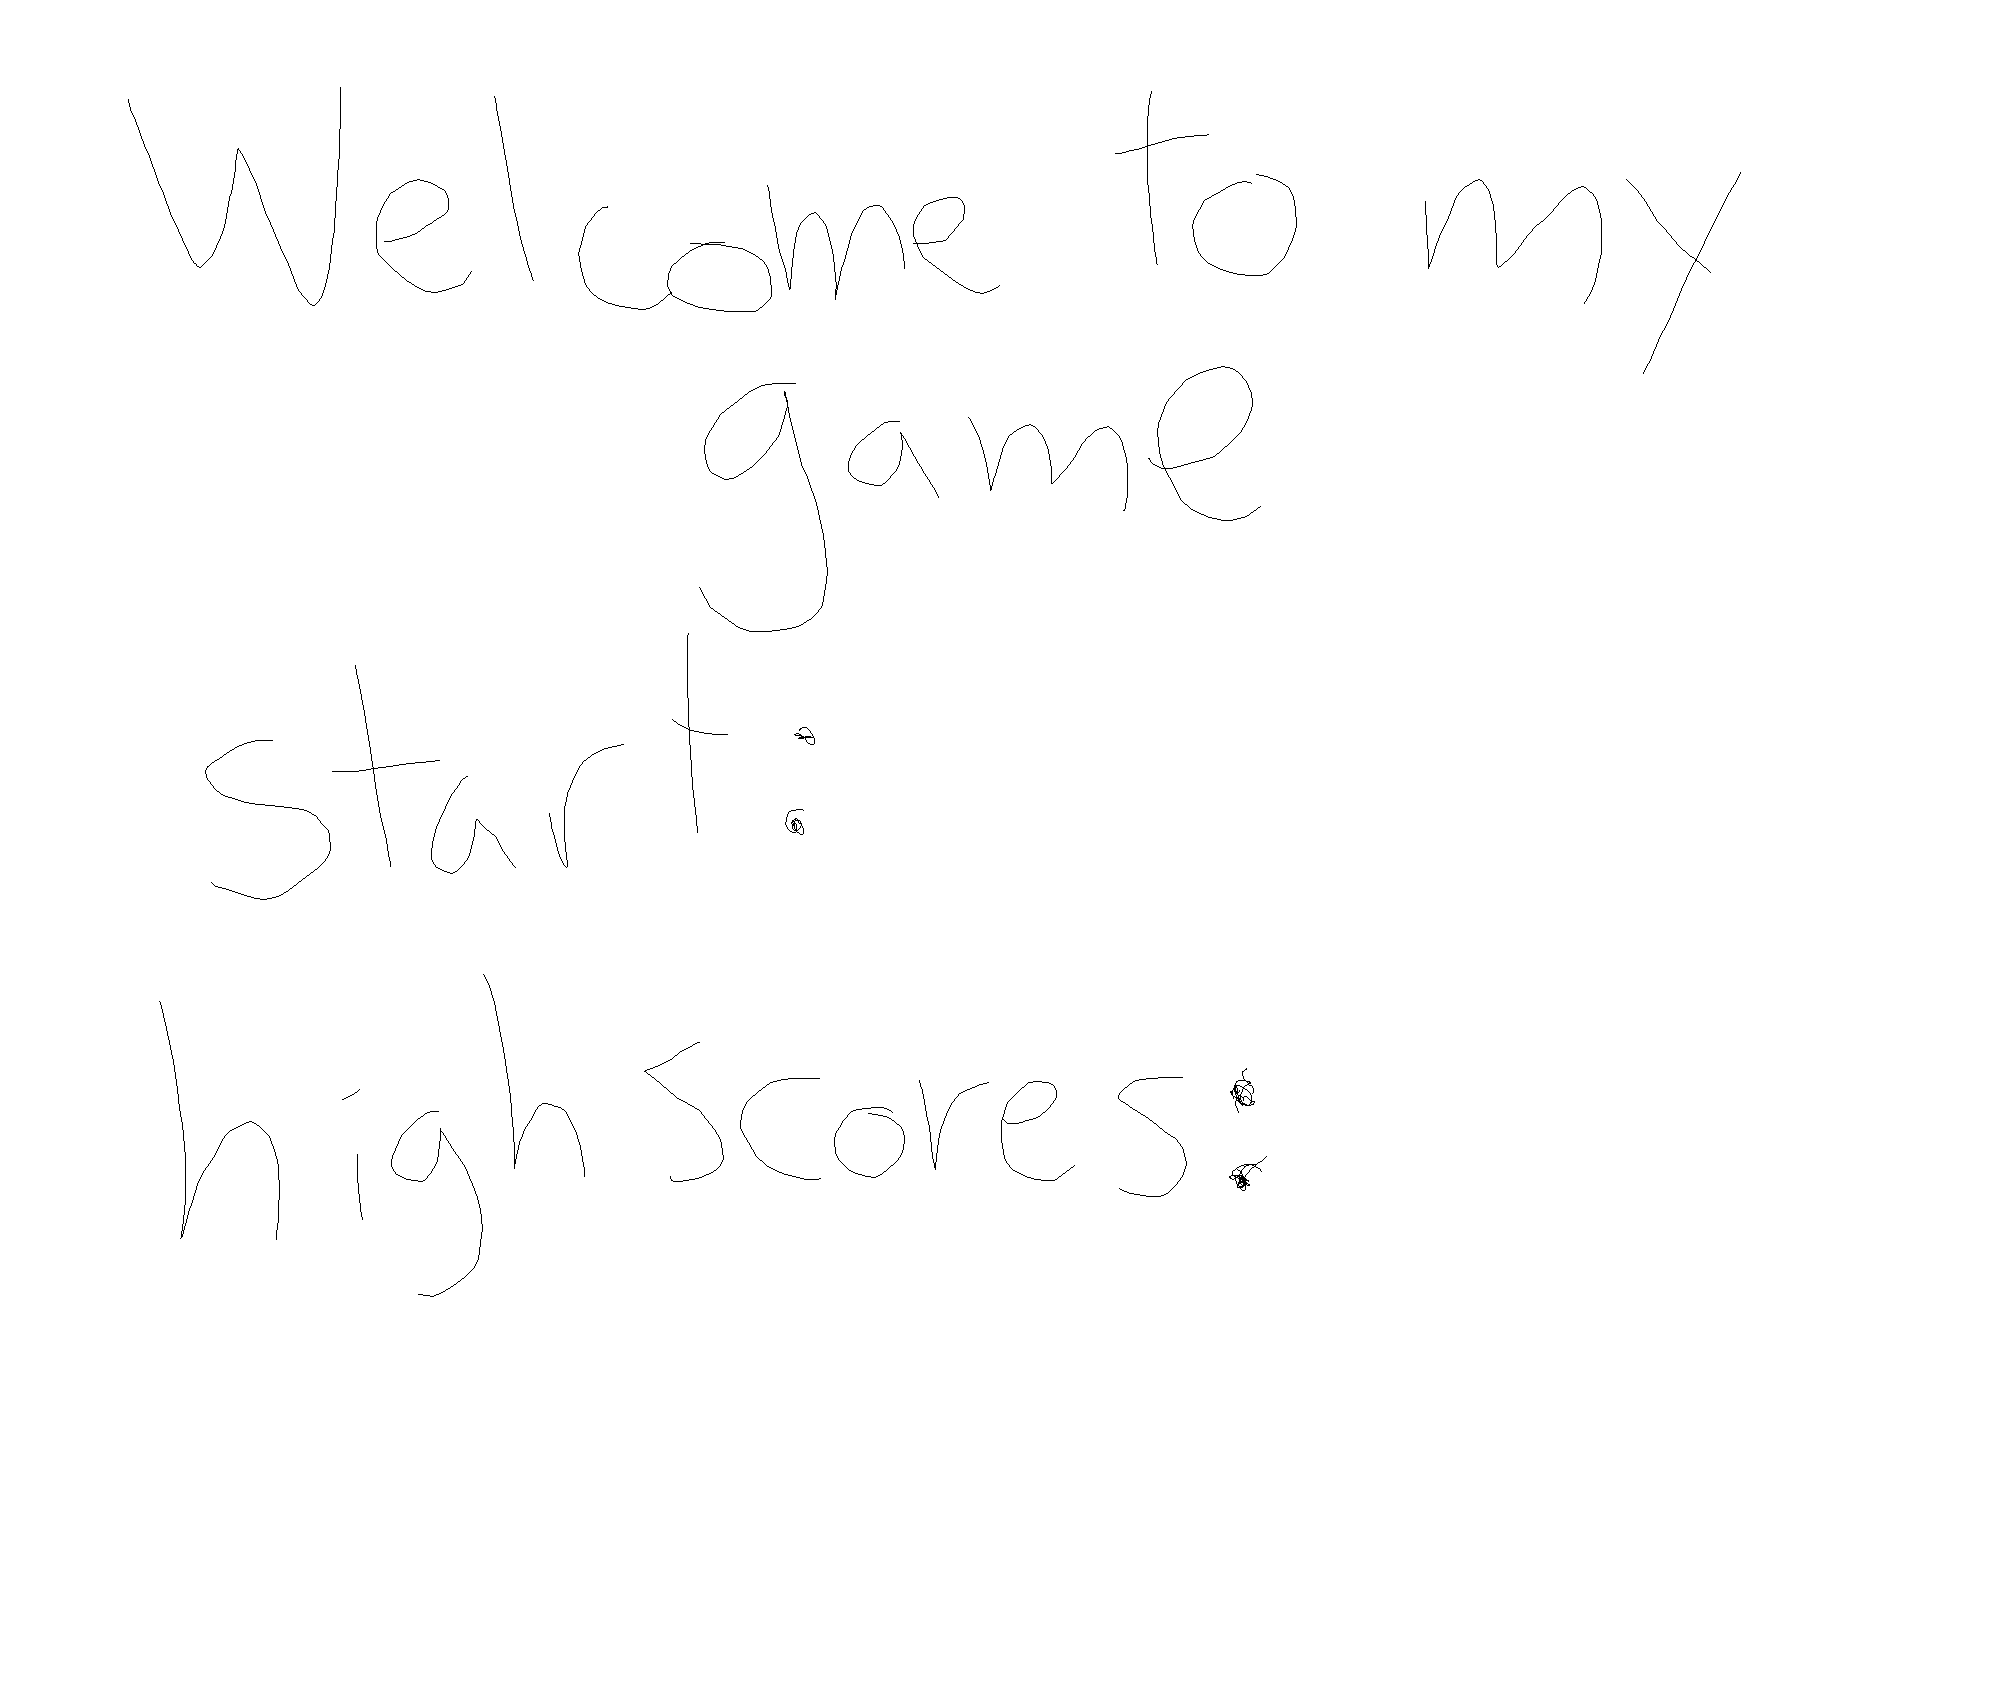 Welcome to my
game
start:
high scores: